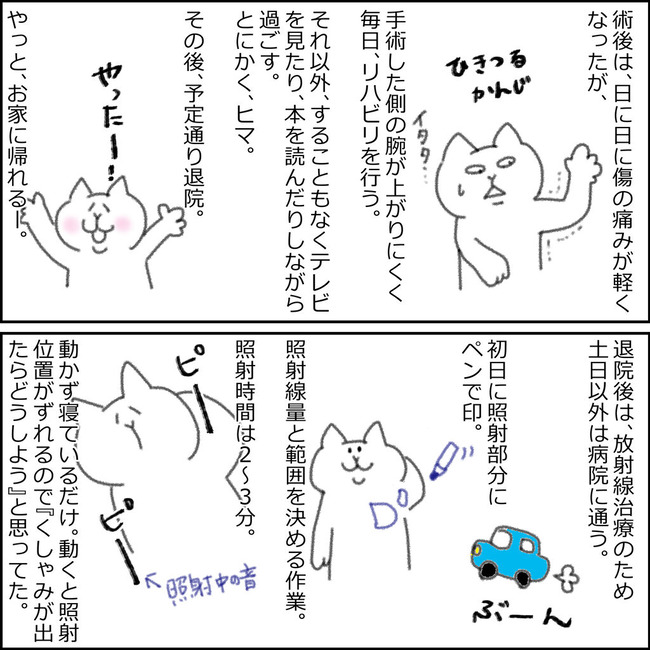 術後は、日に日に傷の痛みが軽く
なったが、
ひきつる
かんじ
イタタ…
手術した側の腕が上がりにくく
毎日、リハビリを行う。
それ以外、することもなくテレビ
を見たり、本を読んだりしながら
過ごす。
とにかく、ヒマ。
その後、予定通り退院。
やったー!
やっと、お家に帰れるー。
退院後は、放射線治療のため
土日以外は病院に通う。
ぶーん
初日に照射部分に
ペンで印。
照射線量と範囲を決める作業。
照射時間は2〜3分。
ピー
ピー
照射中の音
動かず寝ているだけ。動くと照射
位置がずれるので『くしゃみが出
たらどうしよう』と思ってた。